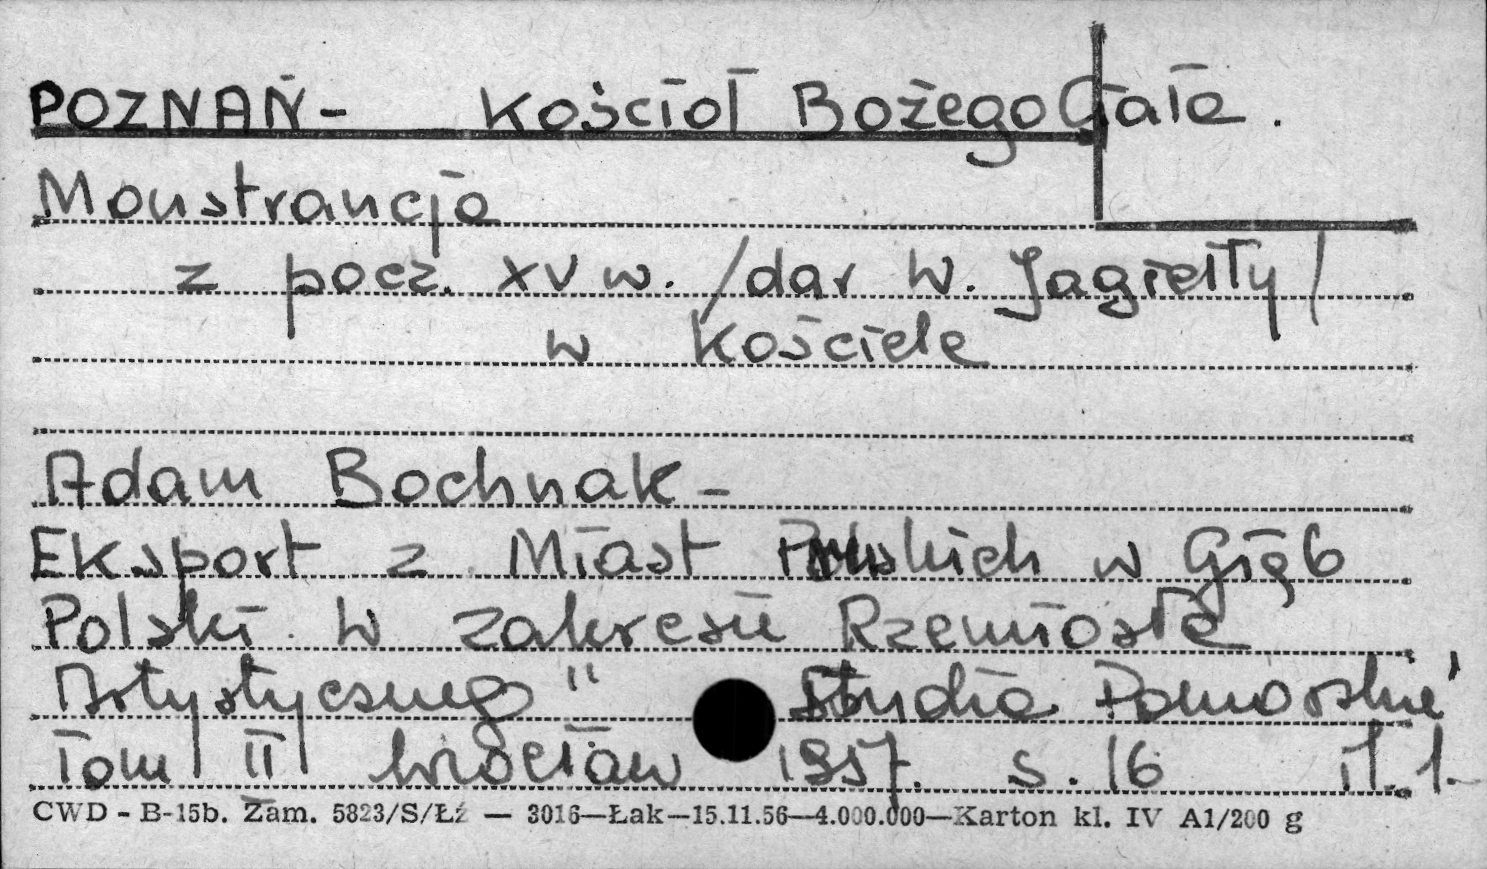 POZNAŃ - Kościoł Bożego Ciała.
Monstrancja
z pocz. XV w. /dar W. Jagiełły/
w Kościele
Adam Bochnak -
Eksport z Miast Pruskich w Głąb
Polski w zakresie Rzemiosła
Artystycznego" Studia Pomorskie'
Tom II Wrocław 1957. s. 16 il. 1.
CWD - B-15b. Zam. 5823/S/Łź — 3016—Łak—15.11.56—4.000.000—Karton kl. IV A1/200 g